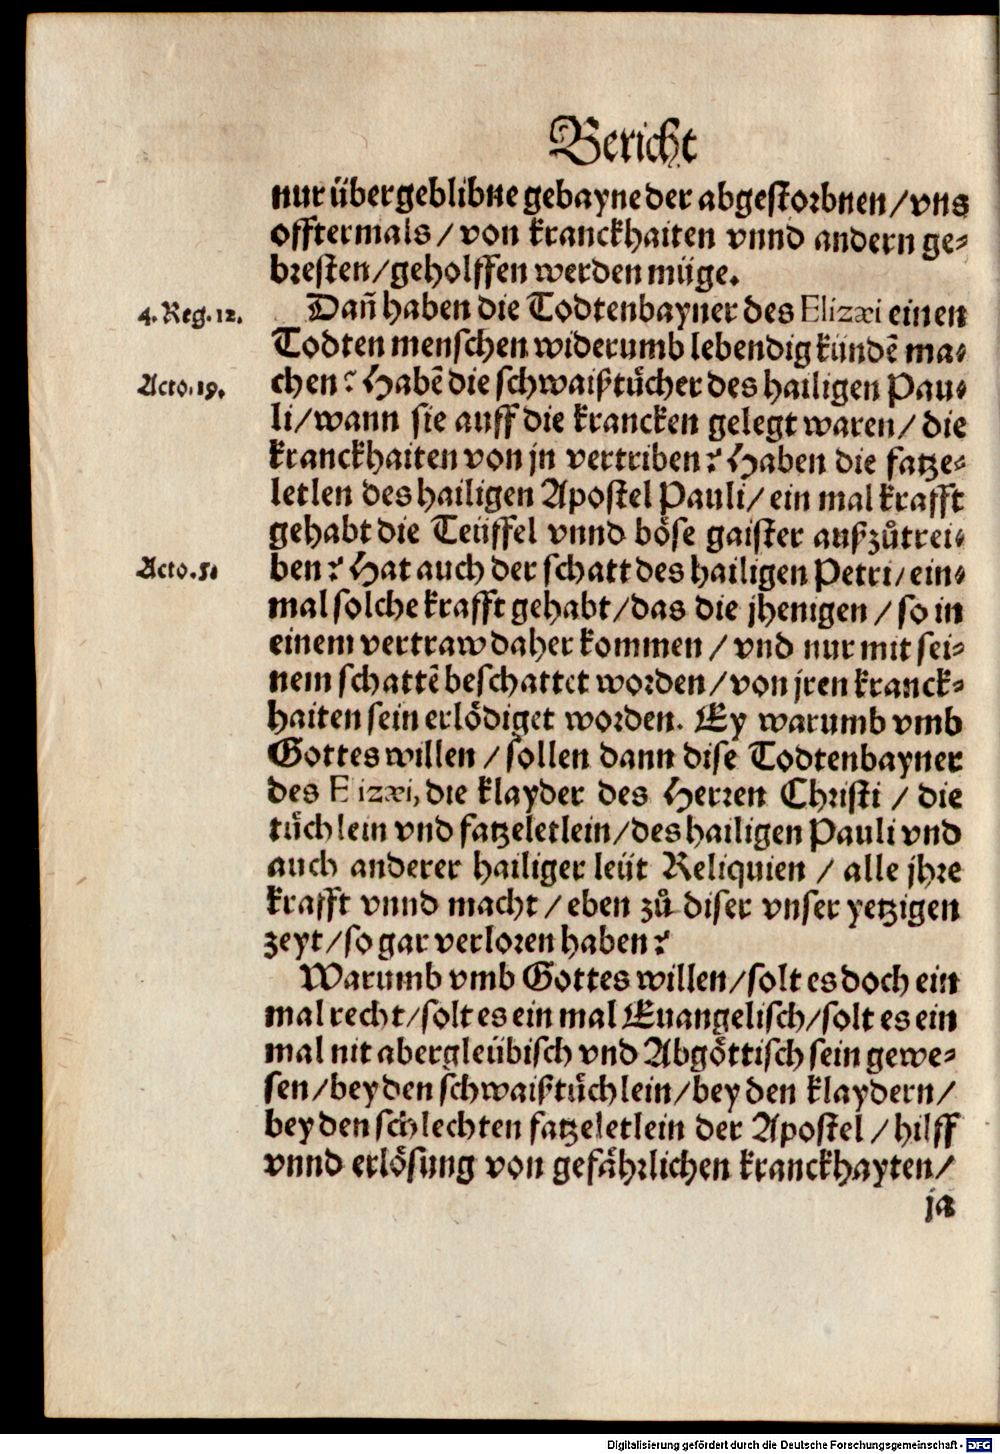 Bericht
nur übergeblibne gebayne der abgestorbnen/vns
offtermals/von kranckhaiten vnnd andern ge-
bresten/geholffen werden müge.
4. Reg. 12. Dañ haben die Todtenbayner des Elizæi einen
Todten menschen widerumb lebendig kündẽ ma-
Acto. 19. chen? Habẽ die schwaißtůcher des hailigen Pau-
li/wann sie auff die krancken gelegt waren/die
kranckhaiten von jn vertriben? Haben die fatze-
letlen des hailigen Apostel Pauli/ein mal krafft
gehabt die Teüffel vnnd böse gaister außzůtrei-
Acto. 5. ben? Hat auch der schatt des hailigen Petri/ein-
mal solche krafft gehabt/das die jhenigen/so in
einem vertraw daher kommen/vnd nur mit sei-
nem schattẽ beschattet worden/von jren kranck-
haiten sein erlödiget worden. Ey warumb vmb
Gottes willen/sollen dann dise Todtenbayner
des E izæi, die klayder des Herren Christi/die
tůchlein vnd fatzeletlein/des hailigen Pauli vnd
auch anderer hailiger leüt Reliquien/alle jhre
krafft vnnd macht/eben zů diser vnser yetzigen
zeyt/so gar verloren haben?
Warumb vmb Gottes willen/solt es doch ein
mal recht/solt es ein mal Euangelisch/solt es ein
mal nit abergleübisch vnd Abgöttisch sein gewe-
sen/bey den schwaißtůchlein/bey den klaydern/
bey den schlechten fatzeletlein der Apostel/hilff
vnnd erlösung von gefährlichen kranckhayten/
ja
Digitalisierung gefördert durch die Deutsche Forschungsgemeinschaft - DFG